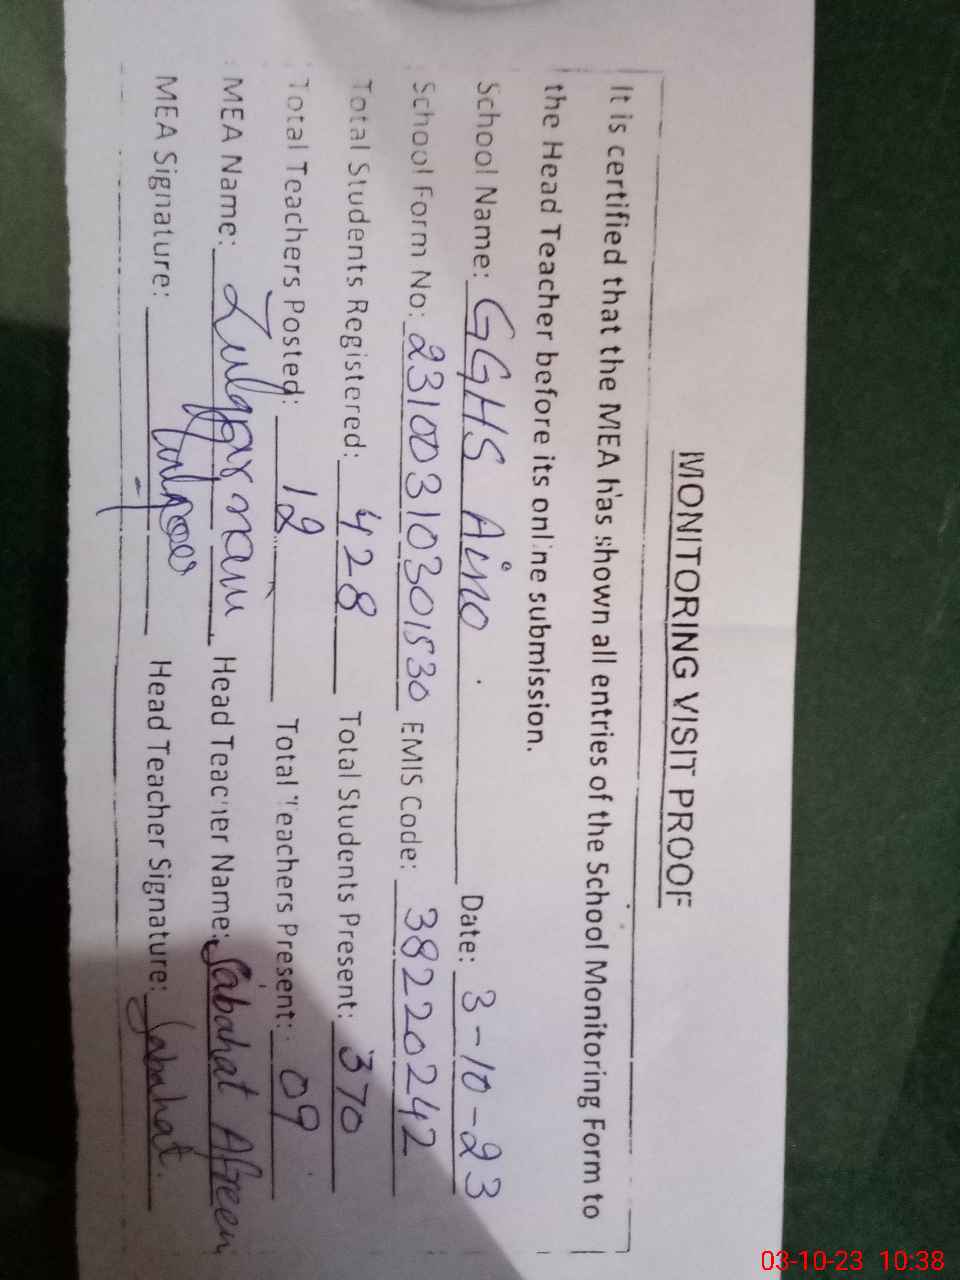 MONITORING VISIT PROOF
It is certified that the MEA has shown all entries of the School Monitoring Form to
the Head Teacher before its online submission.
School Name: GGHS Aino Date: 3-10-23
School Form No: 23100310301530 EMIS Code: 38220242
Total Students Registered: 428 Total Students Present: 370
Total Teachers Posted: 12 Total Teachers Present: 09
MEA Name: Zulqarnain Head Teacher Name: Sabahat Afreen
MEA Signature: Head Teacher Signature: Sabahat
03-10-23 10:38